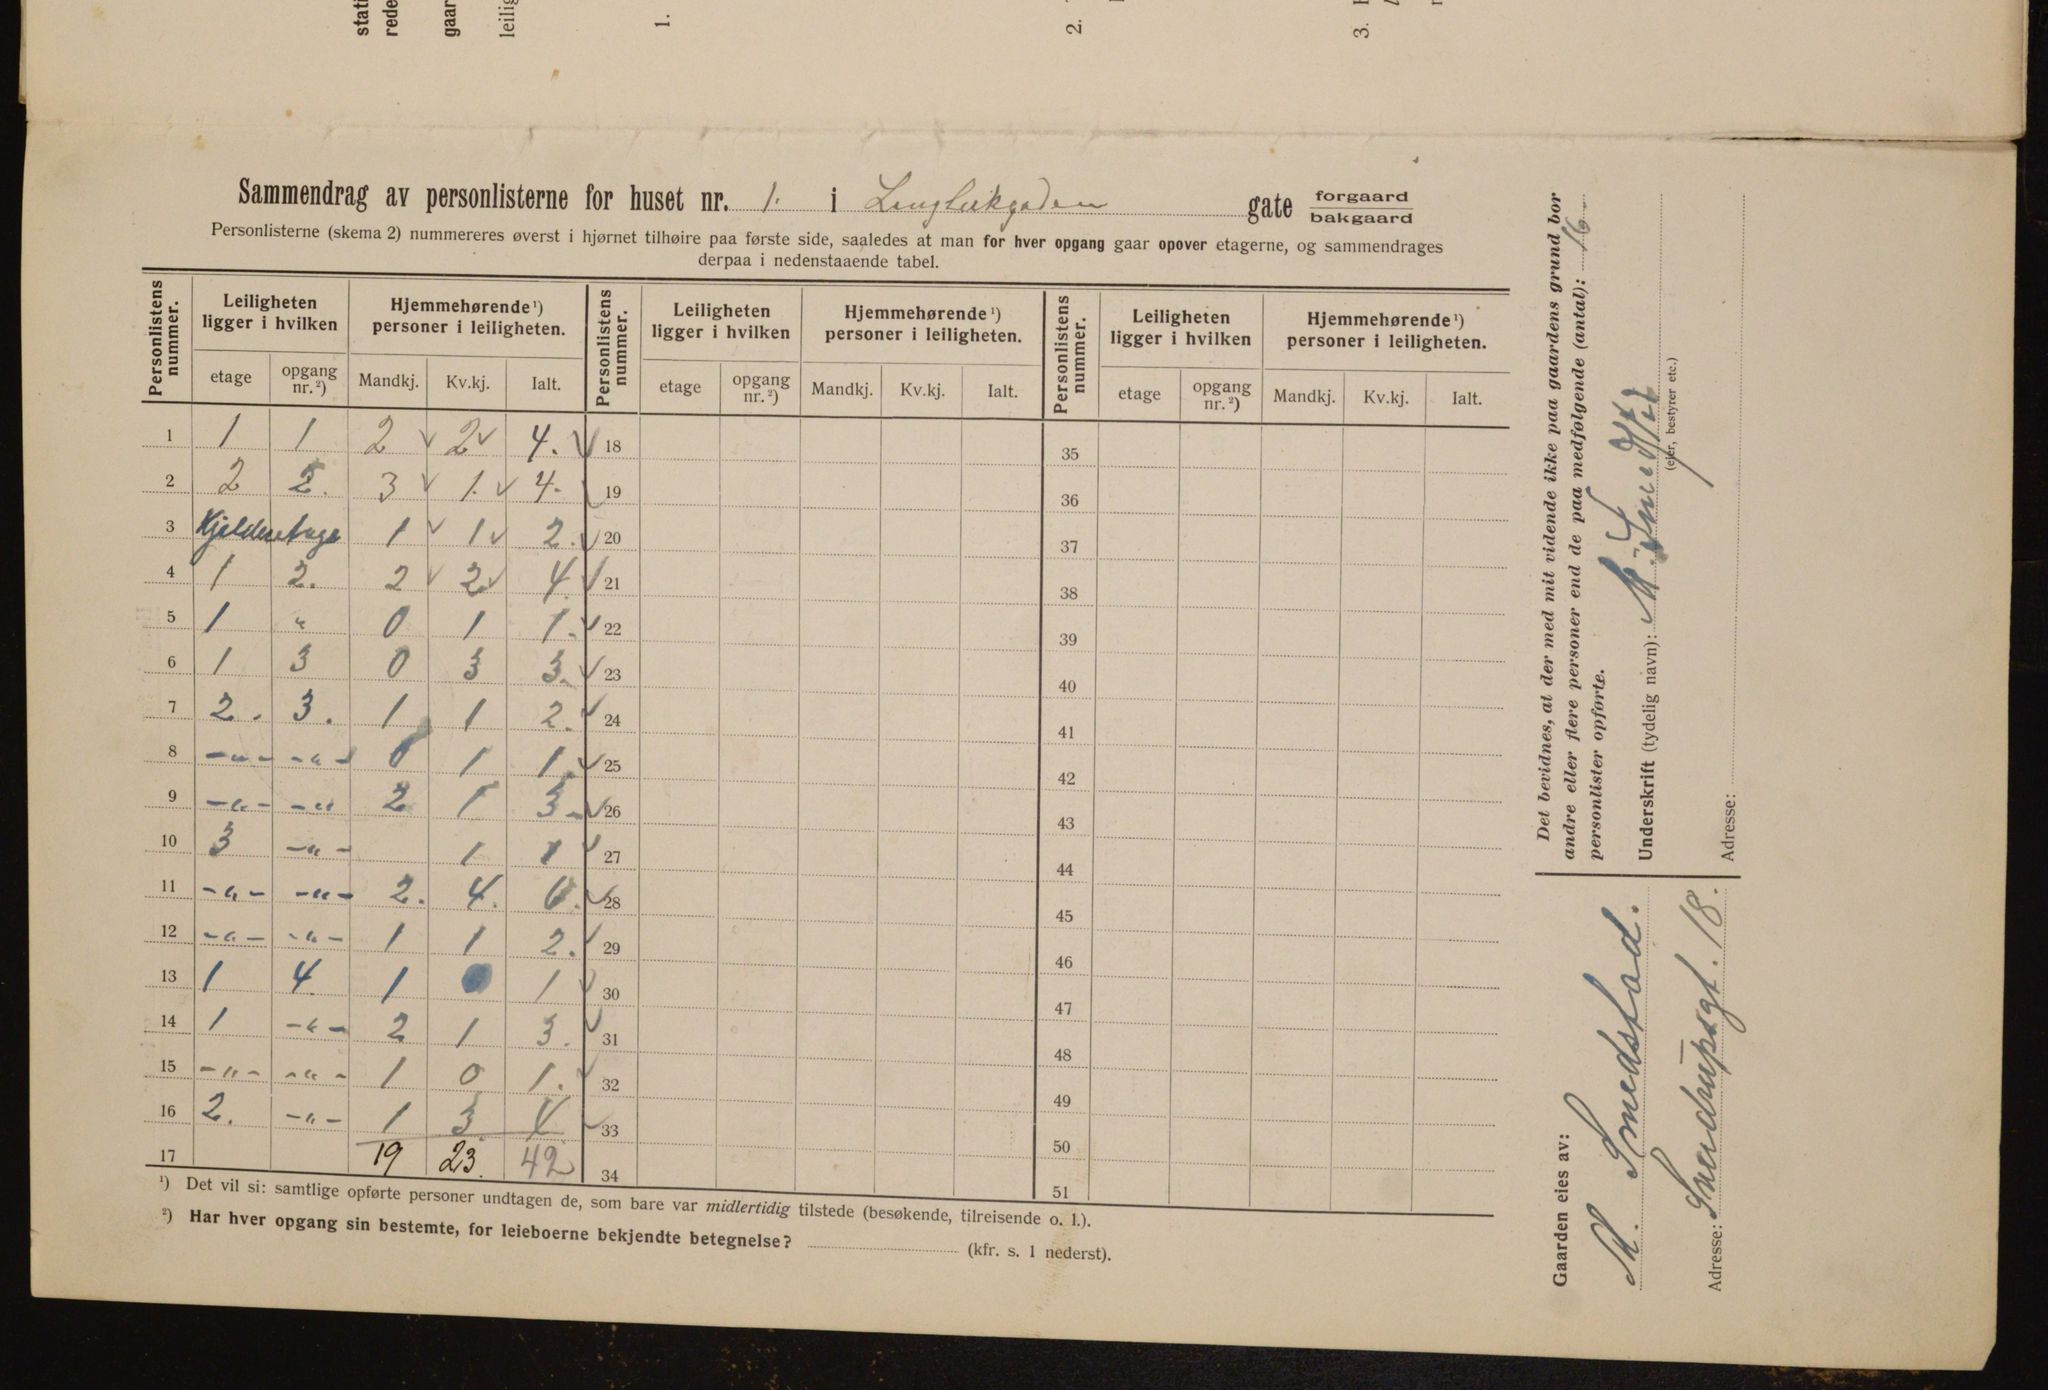 stati
rede
gaar
leilig
1.
2.
3.
Sammendrag av personlisterne for huset nr. 1. i Langleikgaden gate forgaard
bakgaard
Personlisterne (skema 2) nummereres øverst i hjørnet tilhøire paa første side, saaledes at man for hver opgang gaar opover etagerne, og sammendrages
derpaa i nedenstaaende tabel.
Personlistens nummer. Leiligheten ligger i hvilken Hjemmehørende¹) personer i leiligheten. Personlistens nummer. Leiligheten ligger i hvilken Hjemmehørende¹) personer i leiligheten. Personlistens nummer. Leiligheten ligger i hvilken Hjemmehørende¹) personer i leiligheten.
etage opgang nr.²) Mandkj. Kv.kj. Ialt. etage opgang nr.²) Mandkj. Kv.kj. Ialt. etage opgang nr.²) Mandkj. Kv.kj. Ialt.
1 1 1 2 2 4. 18 35
2 2 2. 3 1. 4. 19 36
3 Kjelderetage 1 1 2. 20 37
4 1 2. 2 2 4. 21 38
5 1 " 0 1 1. 22 39
6 1 3 0 3 3. 23 40
7 2. 3. 1 1 2. 24 41
8 -"- -"- 0 1 1. 25 42
9 -"- -"- 2 1 3. 26 43
10 3 -"- 1 1 27 44
11 -"- -"- 2. 4. 6. 28 45
12 -"- -"- 1 1 2. 29 46
13 1 4. 1 1 30 47
14 1 -"- 2 1 3. 31 48
15 -"- -"- 1 0 1. 32 49
16 2. -"- 1 3. 4. 33 50
17 19 23. 42 34 51
¹) Det vil si: samtlige opførte personer undtagen de, som bare var midlertidig tilstede (besøkende, tilreisende o. l.).
²) Har hver opgang sin bestemte, for leieboerne bekjendte betegnelse? (kfr. s. 1 nederst).
Det bevidnes, at der med mit vidende ikke paa gaardens grund bor
andre eller flere personer end de paa medfølgende (antal): 16
personlister opførte.
Underskrift (tydelig navn): M.
(eier, bestyrer etc.)
Adresse:
Gaarden eies av:
M. Smedstad.
Adresse: Sverdrupsgt. 18.